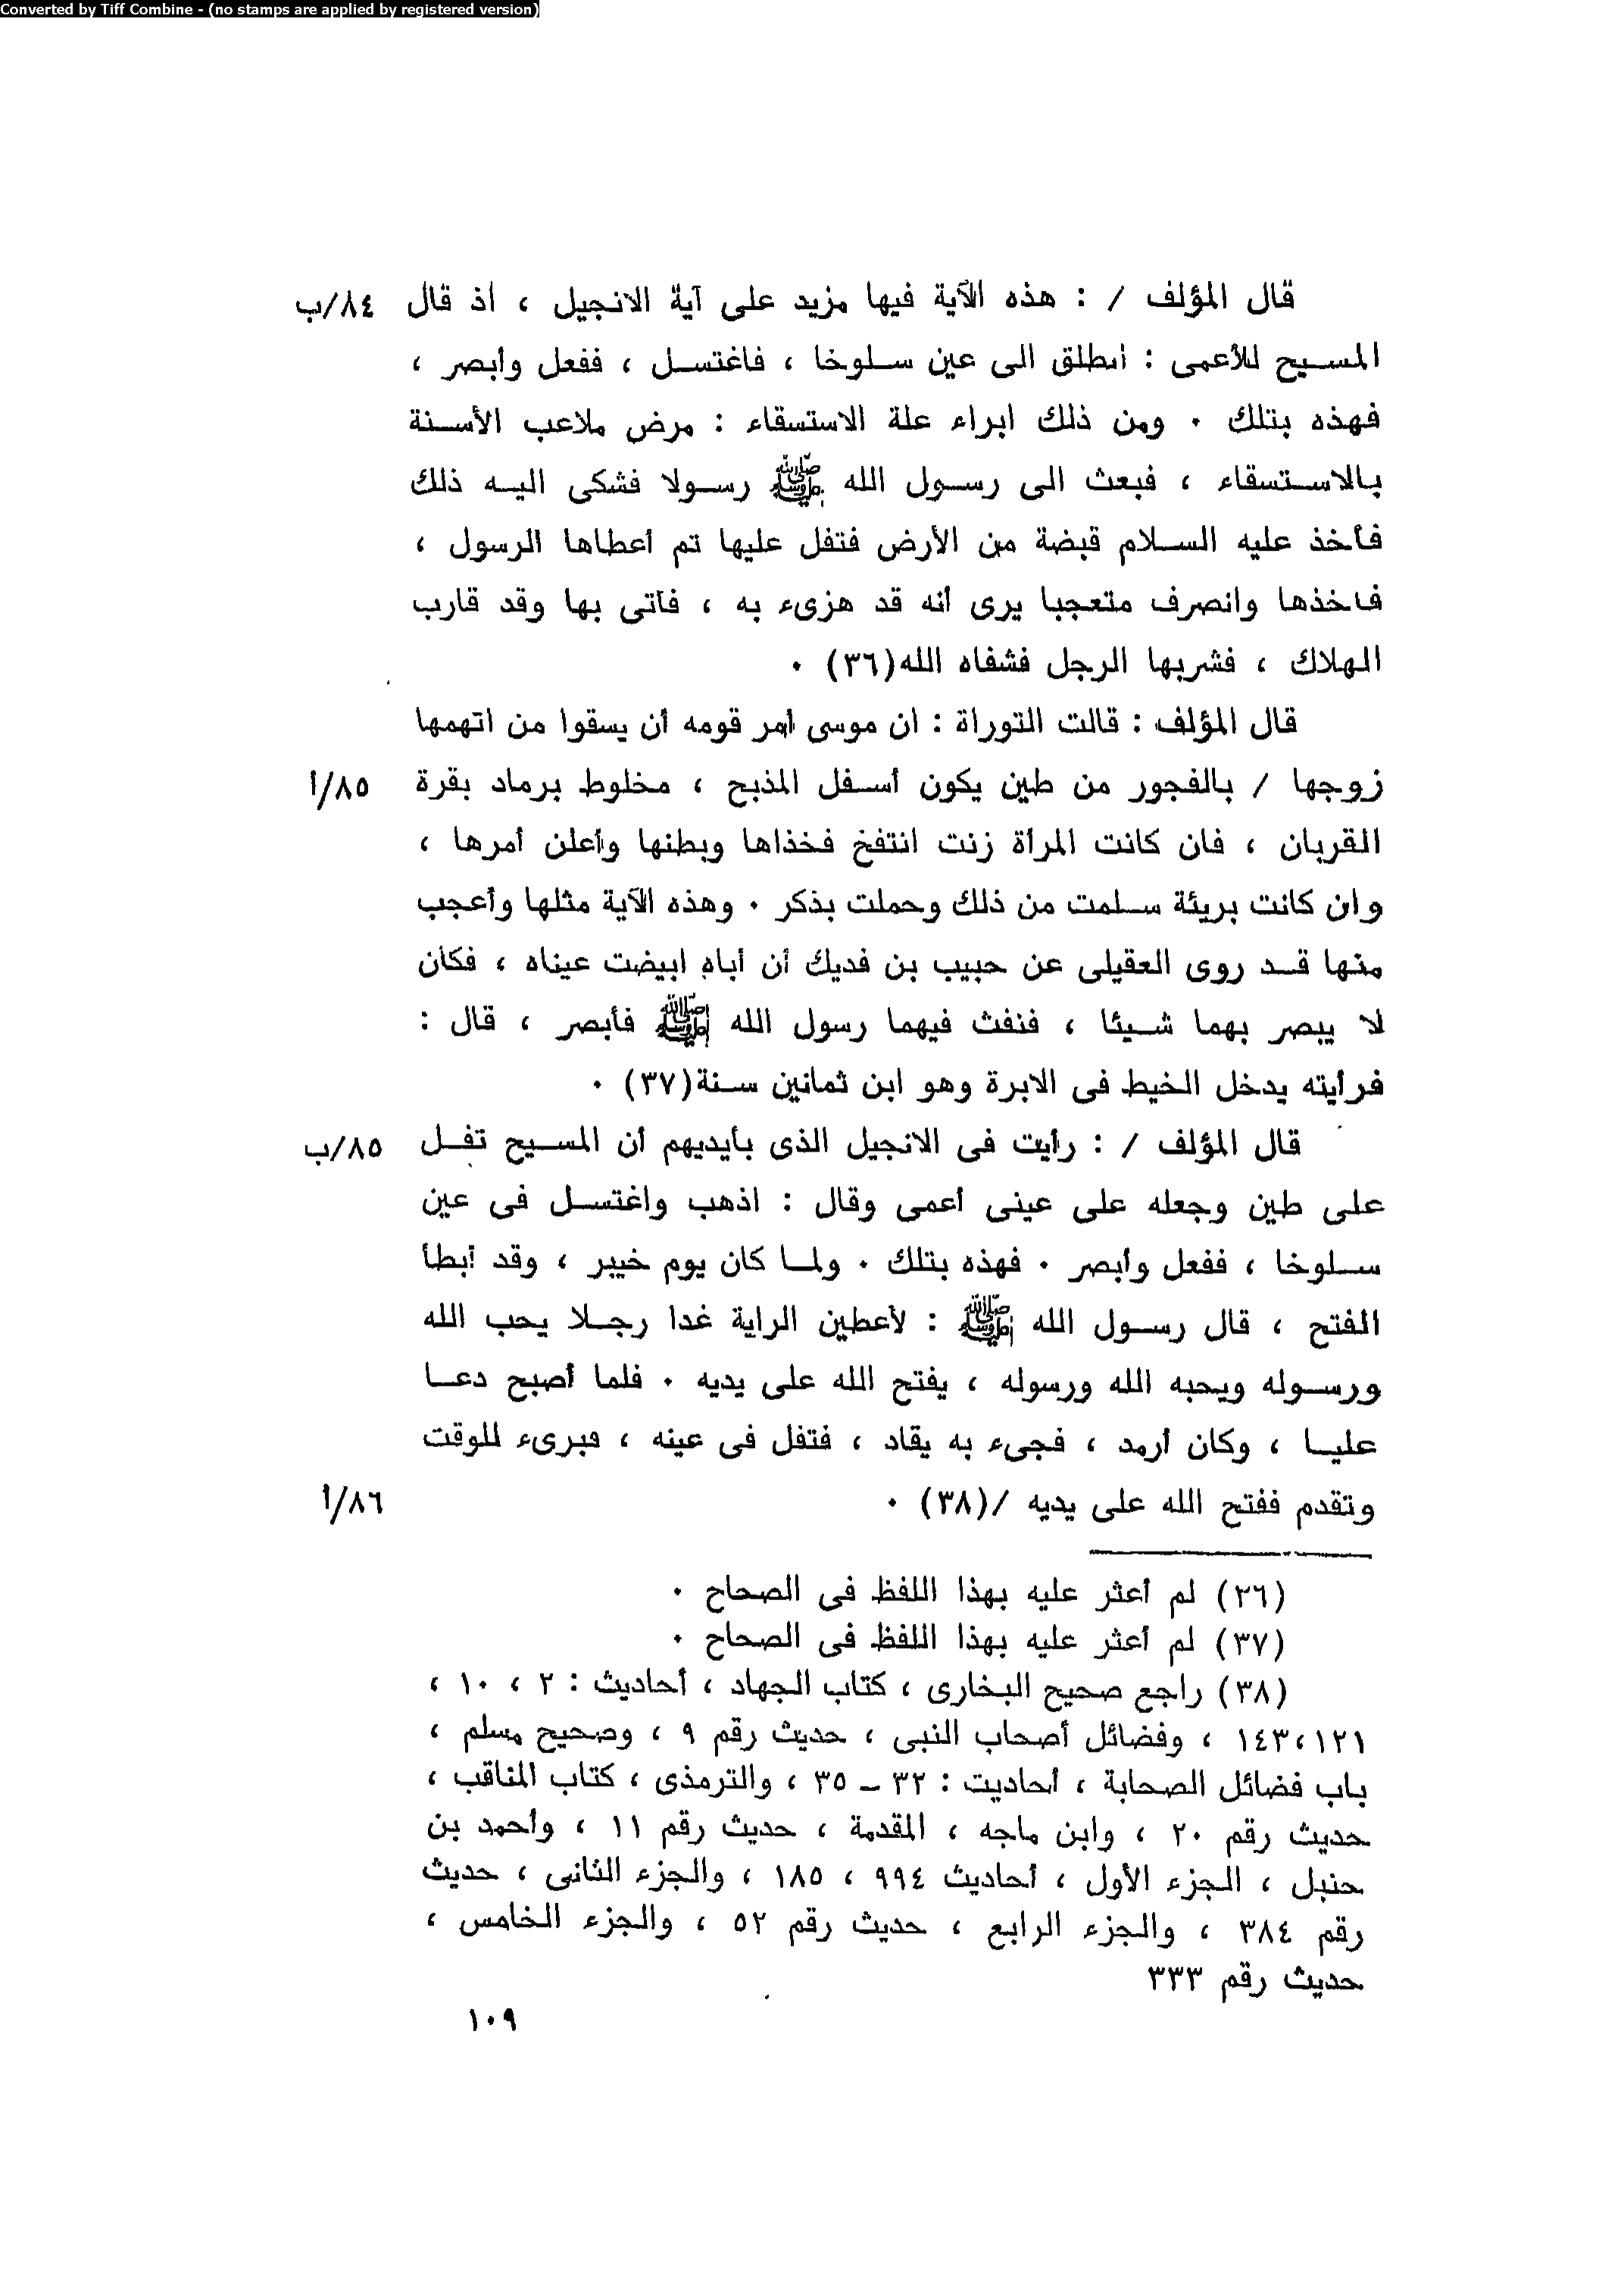 Converted by Tiff Combine - (no stamps are applied by registered version)
قال المؤلف / : هذه الآية فيها مزيد على آية الانجيل ، اذ قال ٨٤/ب
المسيح للأعمى : انطلق الى عين سلوخا ، فاغتسل ، ففعل وأبصر ،
فهذه بتلك . ومن ذلك ابراء علة الاستسقاء : مرض ملاعب الأسنة
بالاستسقاء ، فبعث الى رسول الله ﷺ رسولا فشكى اليه ذلك
فأخذ عليه السلام قبضة من الأرض فتفل عليها تم أعطاها الرسول ،
فاخذها وانصرف متعجبا يرى أنه قد هزىء به ، فأتى بها وقد قارب
الهلاك ، فشربها الرجل فشفاه الله(٣٦) .
قال المؤلف : قالت التوراة : ان موسى أمر قومه أن يسقوا من اتهمها
زوجها / بالفجور من طين يكون أسفل المذبح ، مخلوط برماد بقرة ٨٥/أ
القربان ، فان كانت المرأة زنت انتفخ فخذاها وبطنها وأعلن أمرها ،
وان كانت بريئة سلمت من ذلك وحملت بذكر . وهذه الآية مثلها وأعجب
منها قد روى العقيلى عن حبيب بن فديك أن أباه ابيضت عيناه ، فكان
لا يبصر بهما شيئا ، فنفث فيهما رسول الله ﷺ فأبصر ، قال :
فرأيته يدخل الخيط فى الابرة وهو ابن ثمانين سنة(٣٧) .
قال المؤلف / : رأيت فى الانجيل الذى بأيديهم أن المسيح تفل ٨٥/ب
على طين وجعله على عينى أعمى وقال : اذهب واغتسل فى عين
سلوخا ، ففعل وأبصر . فهذه بتلك . ولما كان يوم خيبر ، وقد أبطأ
الفتح ، قال رسول الله ﷺ : لأعطين الراية غدا رجلا يحب الله
ورسوله ويحبه الله ورسوله ، يفتح الله على يديه . فلما أصبح دعا
عليا ، وكان أرمد ، فجىء به يقاد ، فتفل فى عينه ، فبرىء للوقت
وتقدم ففتح الله على يديه /(٣٨) . ٨٦/أ
(٣٦) لم أعثر عليه بهذا اللفظ فى الصحاح .
(٣٧) لم أعثر عليه بهذا اللفظ فى الصحاح .
(٣٨) راجع صحيح البخارى ، كتاب الجهاد ، أحاديث : ٢ ، ١٠ ،
١٢١،١٤٣ ، وفضائل أصحاب النبى ، حديث رقم ٩ ، وصحيح مسلم ،
باب فضائل الصحابة ، أحاديت : ٣٢ – ٣٥ ، والترمذى ، كتاب المناقب ،
حديث رقم ٢٠ ، وابن ماجه ، المقدمة ، حديث رقم ١١ ، وأحمد بن
حنبل ، الجزء الأول ، أحاديث ٩٩٤ ، ١٨٥ ، والجزء الثانى ، حديث
رقم ٣٨٤ ، والجزء الرابع ، حديث رقم ٥٢ ، والجزء الخامس ،
حديث رقم ٣٣٣
١٠٩